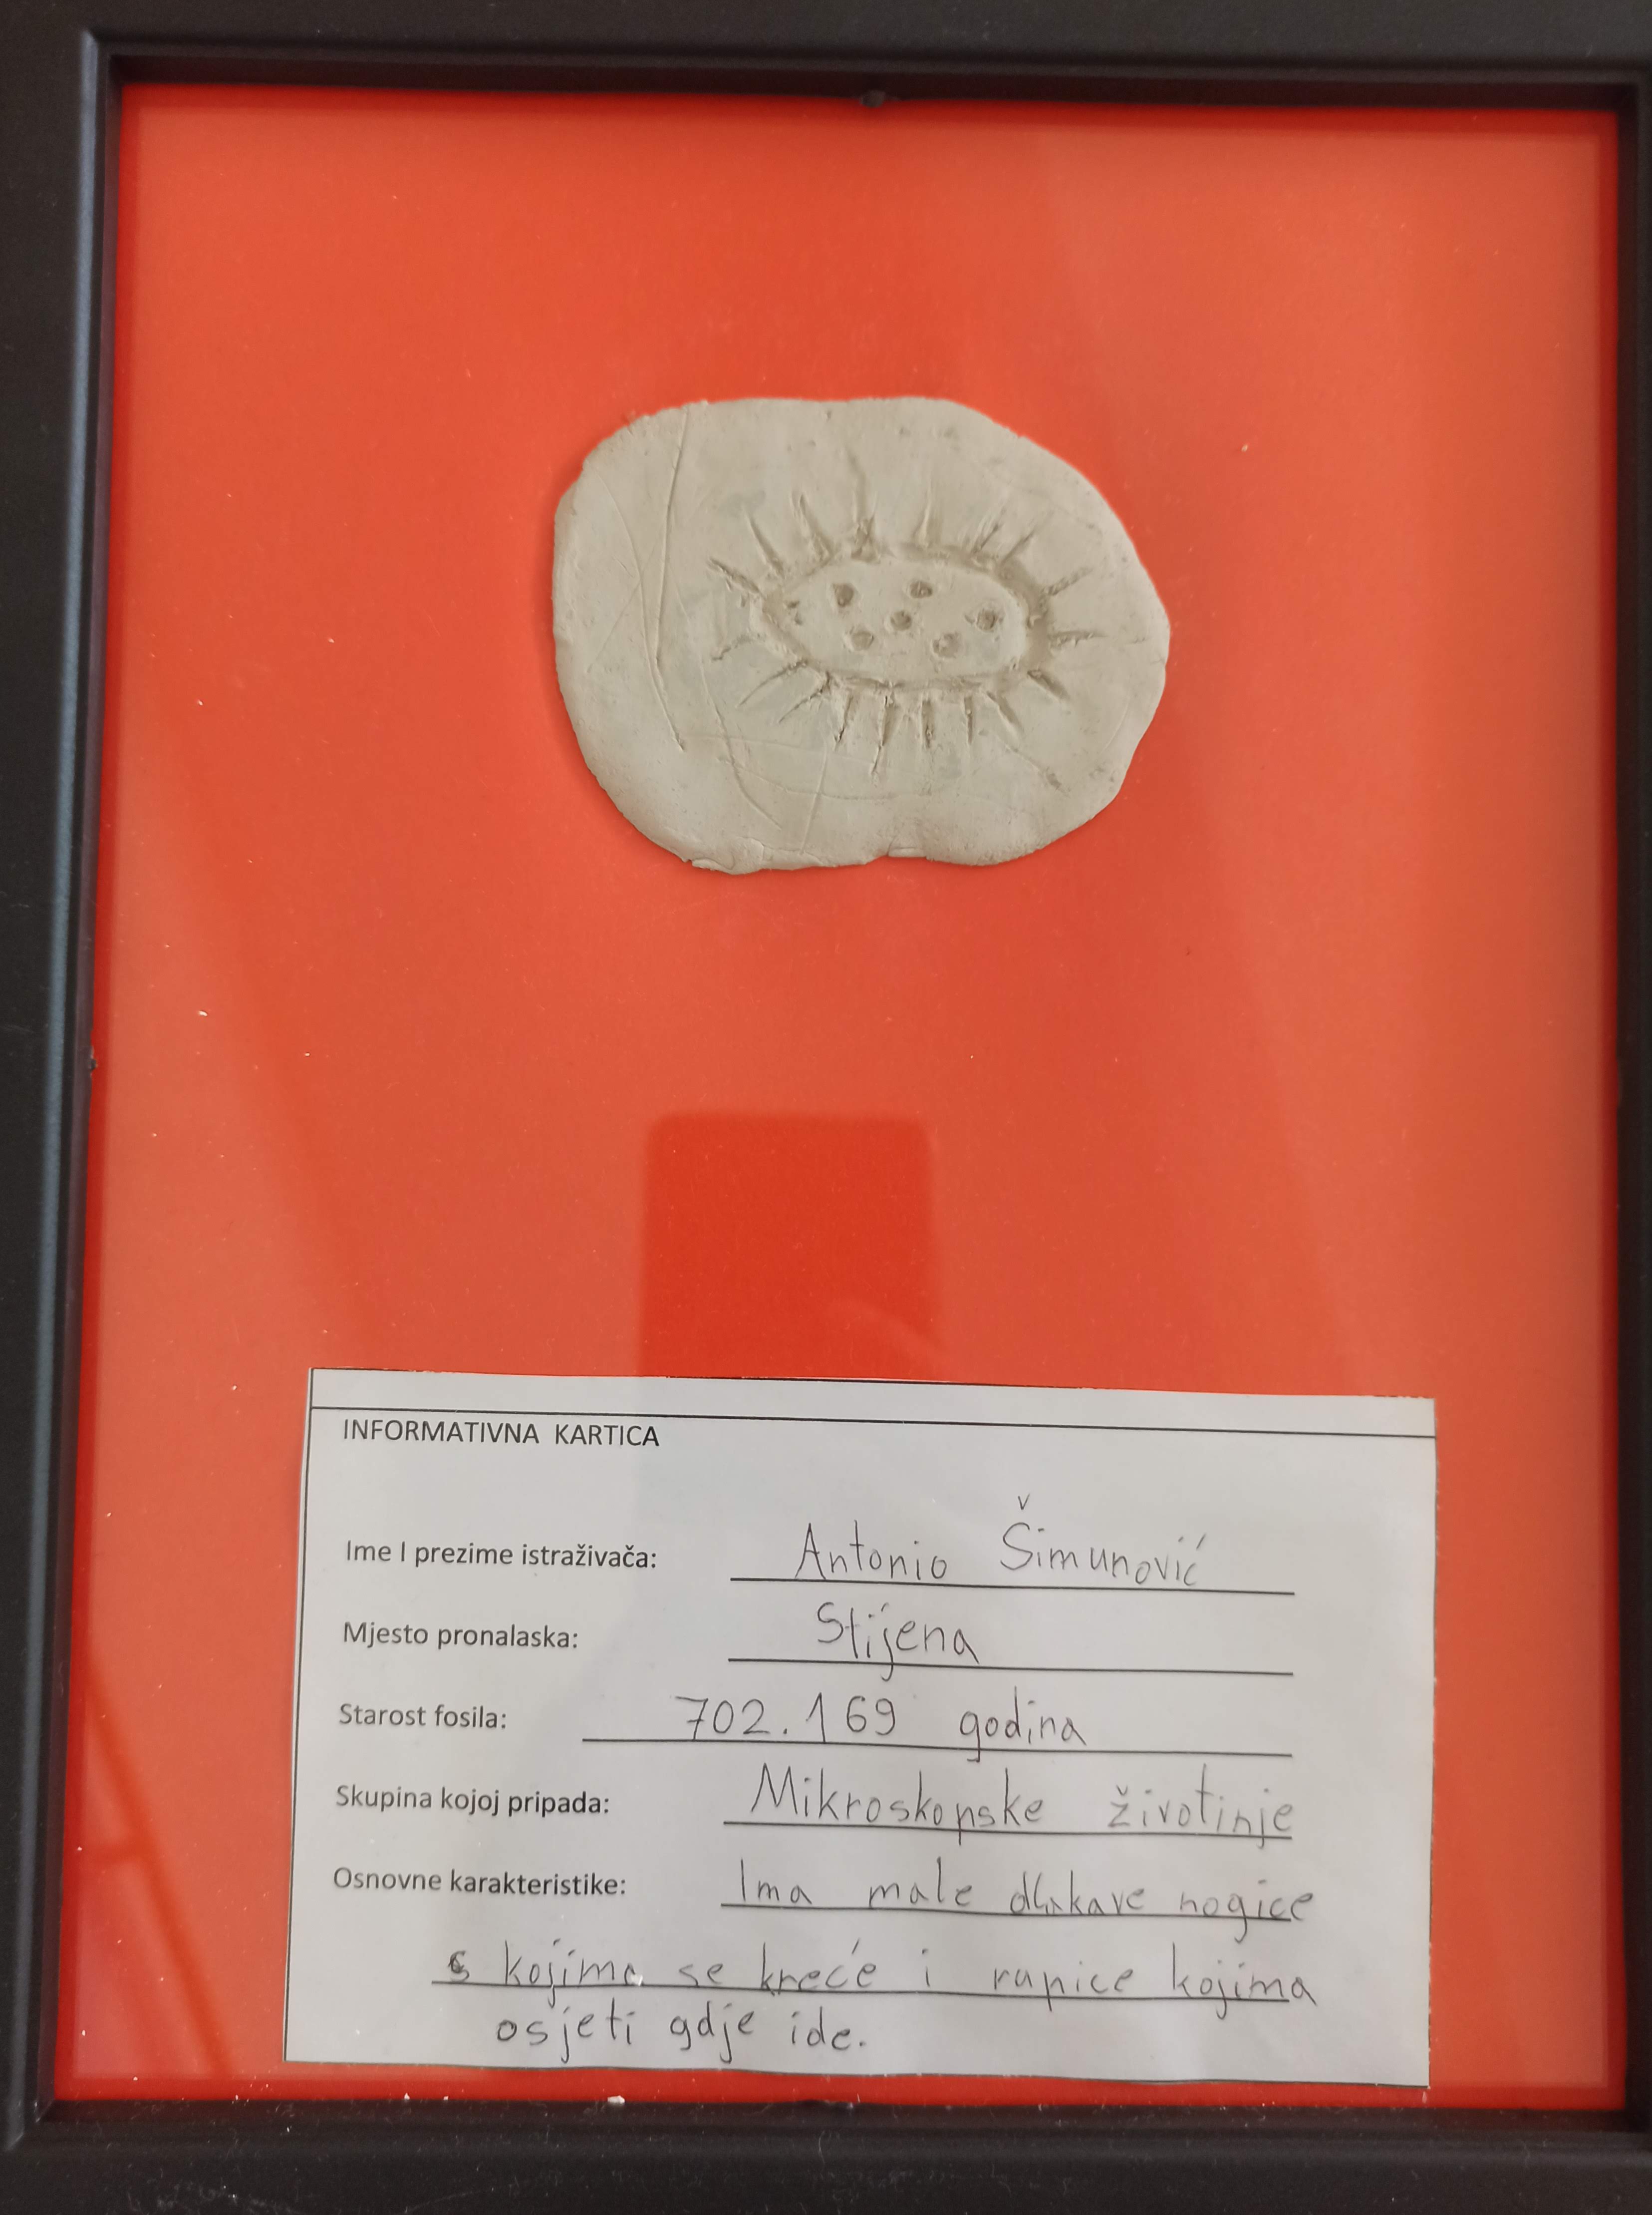 INFORMATIVNA KARTICA
Ime I prezime istraživača: Antonio Šimunović
Mjesto pronalaska: Stijena
Starost fosila: 702.169 godina
Skupina kojoj pripada: Mikroskopske životinje
Osnovne karakteristike: Ima male dlakave nogice
s kojima se kreće i rupice kojima
osjeti gdje ide.